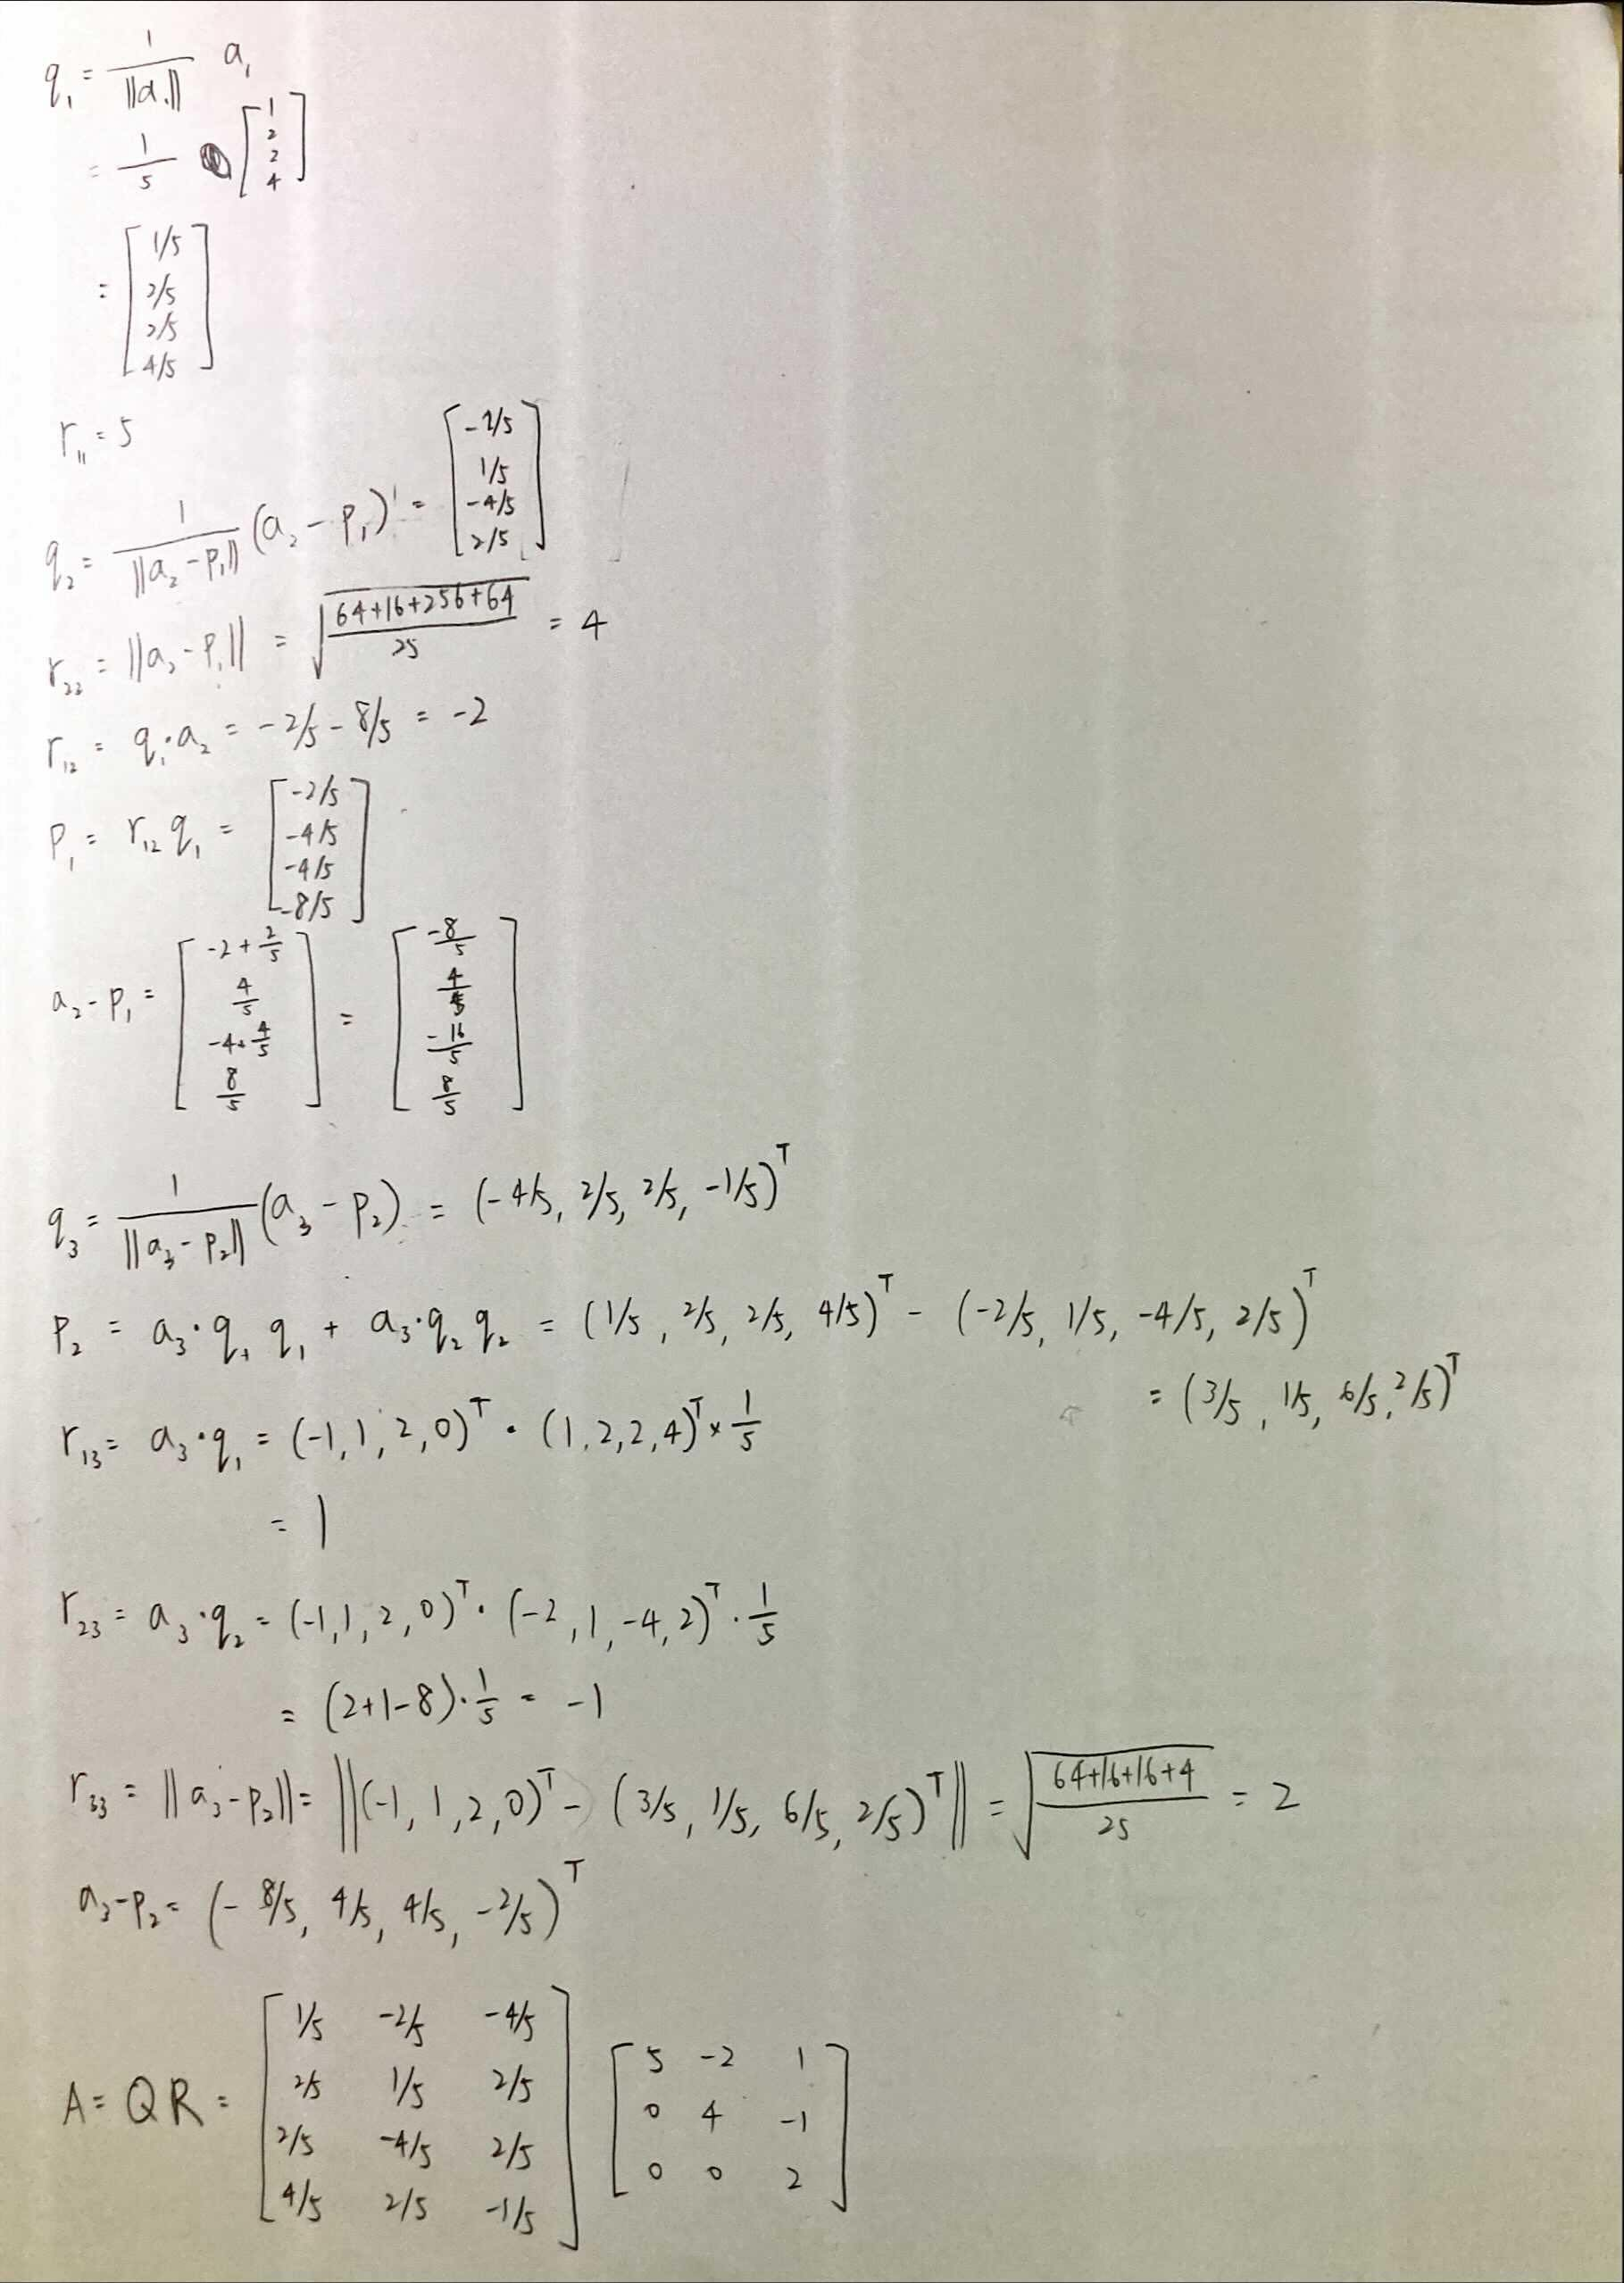 q₁ = 1/‖a₁‖ a₁
= 1/5 [1 2 2 4]
= [1/5 2/5 2/5 4/5]
r₁₁ = 5
q₂ = 1/‖a₂ - p₁‖ (a₂ - p₁) = [-2/5 1/5 -4/5 2/5]
r₂₂ = ‖a₂ - p₁‖ = √((64+16+256+64)/25) = 4
r₁₂ = q₁·a₂ = -2/5 - 8/5 = -2
p₁ = r₁₂ q₁ = [-2/5 -4/5 -4/5 -8/5]
a₂ - p₁ = [-2+2/5 4/5 -4+4/5 8/5] = [-8/5 4/5 -16/5 8/5]
q₃ = 1/‖a₃ - p₂‖ (a₃ - p₂) = (-4/5, 2/5, 2/5, -1/5)ᵀ
p₂ = a₃·q₁ q₁ + a₃·q₂ q₂ = (1/5, 2/5, 2/5, 4/5)ᵀ - (-2/5, 1/5, -4/5, 2/5)ᵀ
= (3/5, 1/5, 6/5, 2/5)ᵀ
r₁₃ = a₃·q₁ = (-1, 1, 2, 0)ᵀ · (1, 2, 2, 4)ᵀ × 1/5
= 1
r₂₃ = a₃·q₂ = (-1, 1, 2, 0)ᵀ · (-2, 1, -4, 2)ᵀ · 1/5
= (2+1-8)·1/5 = -1
r₃₃ = ‖a₃-p₂‖ = ‖(-1, 1, 2, 0)ᵀ - (3/5, 1/5, 6/5, 2/5)ᵀ‖ = √((64+16+16+4)/25) = 2
a₃-p₂ = (-8/5, 4/5, 4/5, -2/5)ᵀ
A = QR = [1/5 -2/5 -4/5 [5 -2 1
2/5 1/5 2/5 0 4 -1
2/5 -4/5 2/5 0 0 2]
4/5 2/5 -1/5]